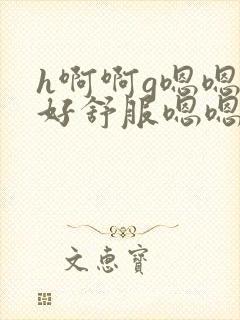 h啊啊g嗯嗯
好舒服嗯嗯
文惠宝